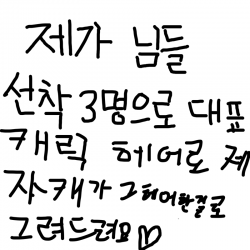 제가 님들
선착 3명으로 대표
캐릭 헤어로 제
자캐가 그헤어한걸로
그려드려요♡